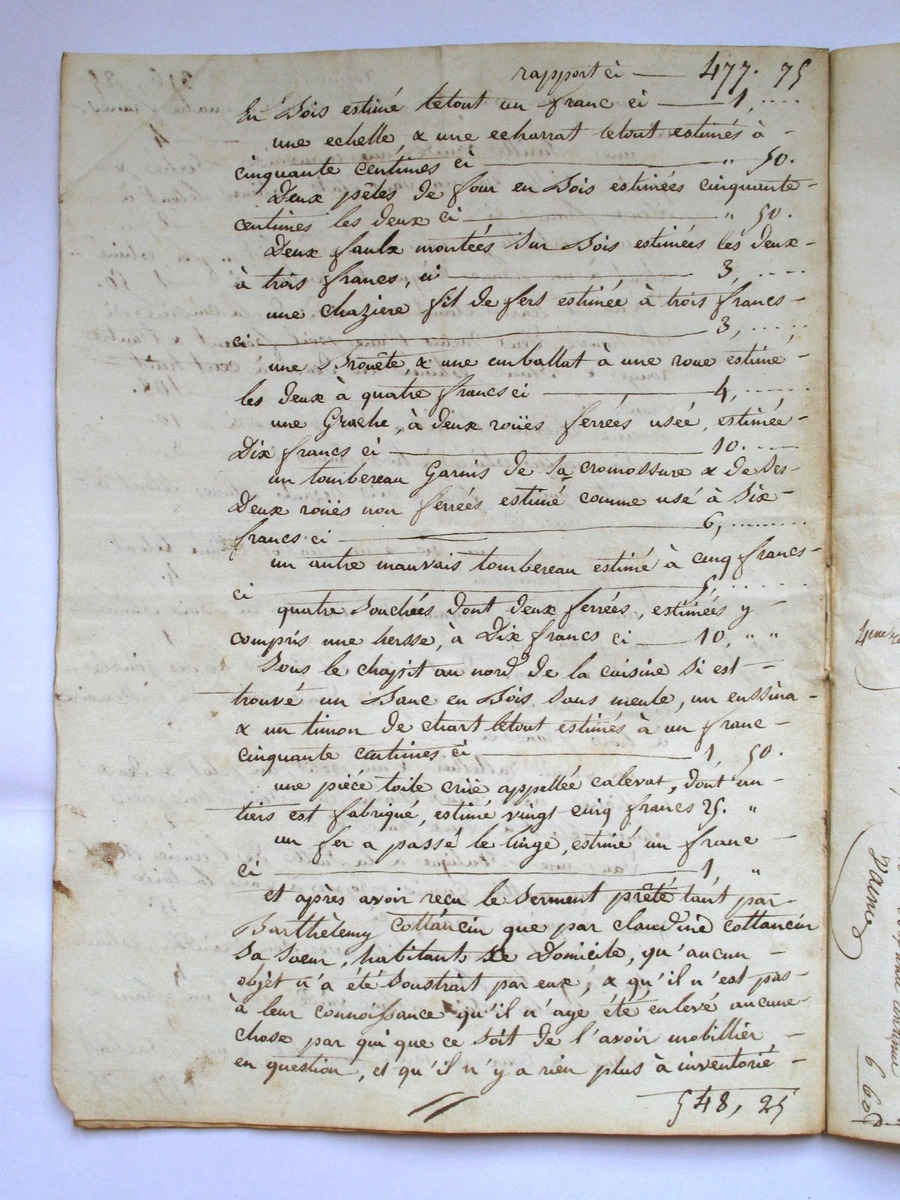 rapport ci — 477. 75
En Bois estimé letout un franc ci — 1, ....
une echelle, & une echarrat letout estimés à -
cinquante centimes ci — " 50.
Deux pêles de four en Bois estimées cinquante -
centimes les deux ci — " 50.
Deux faulx montées sur Bois estimées les deux -
à trois francs, ci — 3, ....
une chaziere fil de fers estimée à trois francs -
ci — 3, ....
une Brouête, & une emballat à une roue estimé -
les deux à quatre francs ci — 4, ....
une Grache, à deux roües ferrées usée, estimée -
Dix francs ci — 10. ....
un tombereau Garnis de sa cromossure & de ses -
Deux roües non ferrées estimé comme usé à six -
francs ci — 6, ....
un autre mauvais tombereau estimé à cinq francs -
ci — 5, ....
quatre souchées dont deux ferrées, estimées y -
compris une hersse, à Dix francs ci — 10, " "
Sous le chapit au nord de la cuisine si est -
trouvé un Banc en Bois sans meule, un enssina -
& un timon de chart letout estimés à un franc -
cinquante centimes ci — 1, 50.
une piéce toile crüe appellée calevat, dont un -
tiers est fabriqué, estimé vingt cinq francs 25. "
un fer a passé le linge, estimé un franc -
ci — 1, "
et après avoir reçu le serment prêté tant par -
Barthélemy Cottancin que par claudine cottancin
sa soeur, habitants de Domicile, qu'aucun -
objet n'a été soustrait par eux, & qu'il n'est pas -
à leur connoissance qu'il n'aye été enlevé aucune -
chose par qui que ce soit de l'avoir mobillier -
en question, et qu'il n'y a rien plus à inventorié -
548, 25